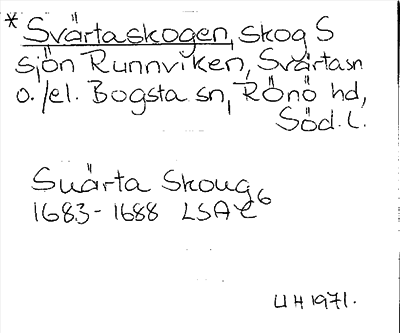 * Svärtaskogen, skog S
sjön Runnviken, Svärta sn
o./el. Bogsta sn, Rönö hd,
Söd. l.
Suärta Skoug
1683-1688 LSA C6
UH 1971.